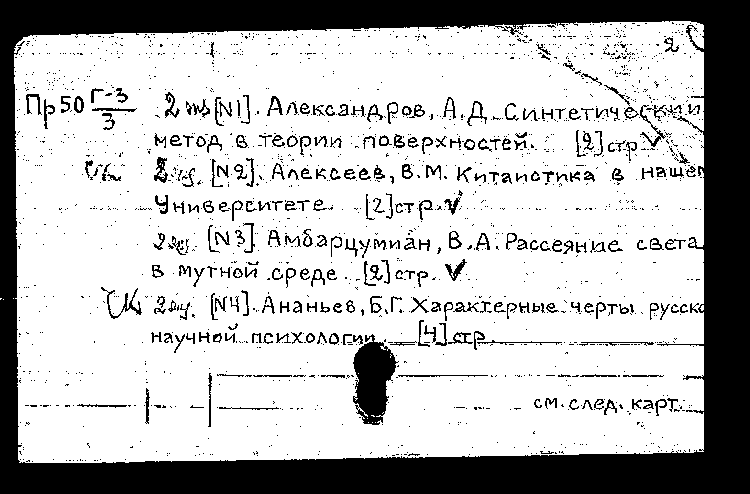 2
Пр50 Г-3/3 2 экз [N1]. Александров, А.Д. Синтетический
метод в теории поверхностей. [2] стр. V
2 экз. [N2]. Алексеев, В.М. Китаистика в нашем
Университете [2] стр. V
2 экз. [N3] Амбарцумиан, В.А. Рассеяние света
в мутной среде. [2] стр. V
2 экз. [N4]. Ананьев, Б.Г. Характерные черты русско
научной психологии. [4] стр.
см. след. карт.